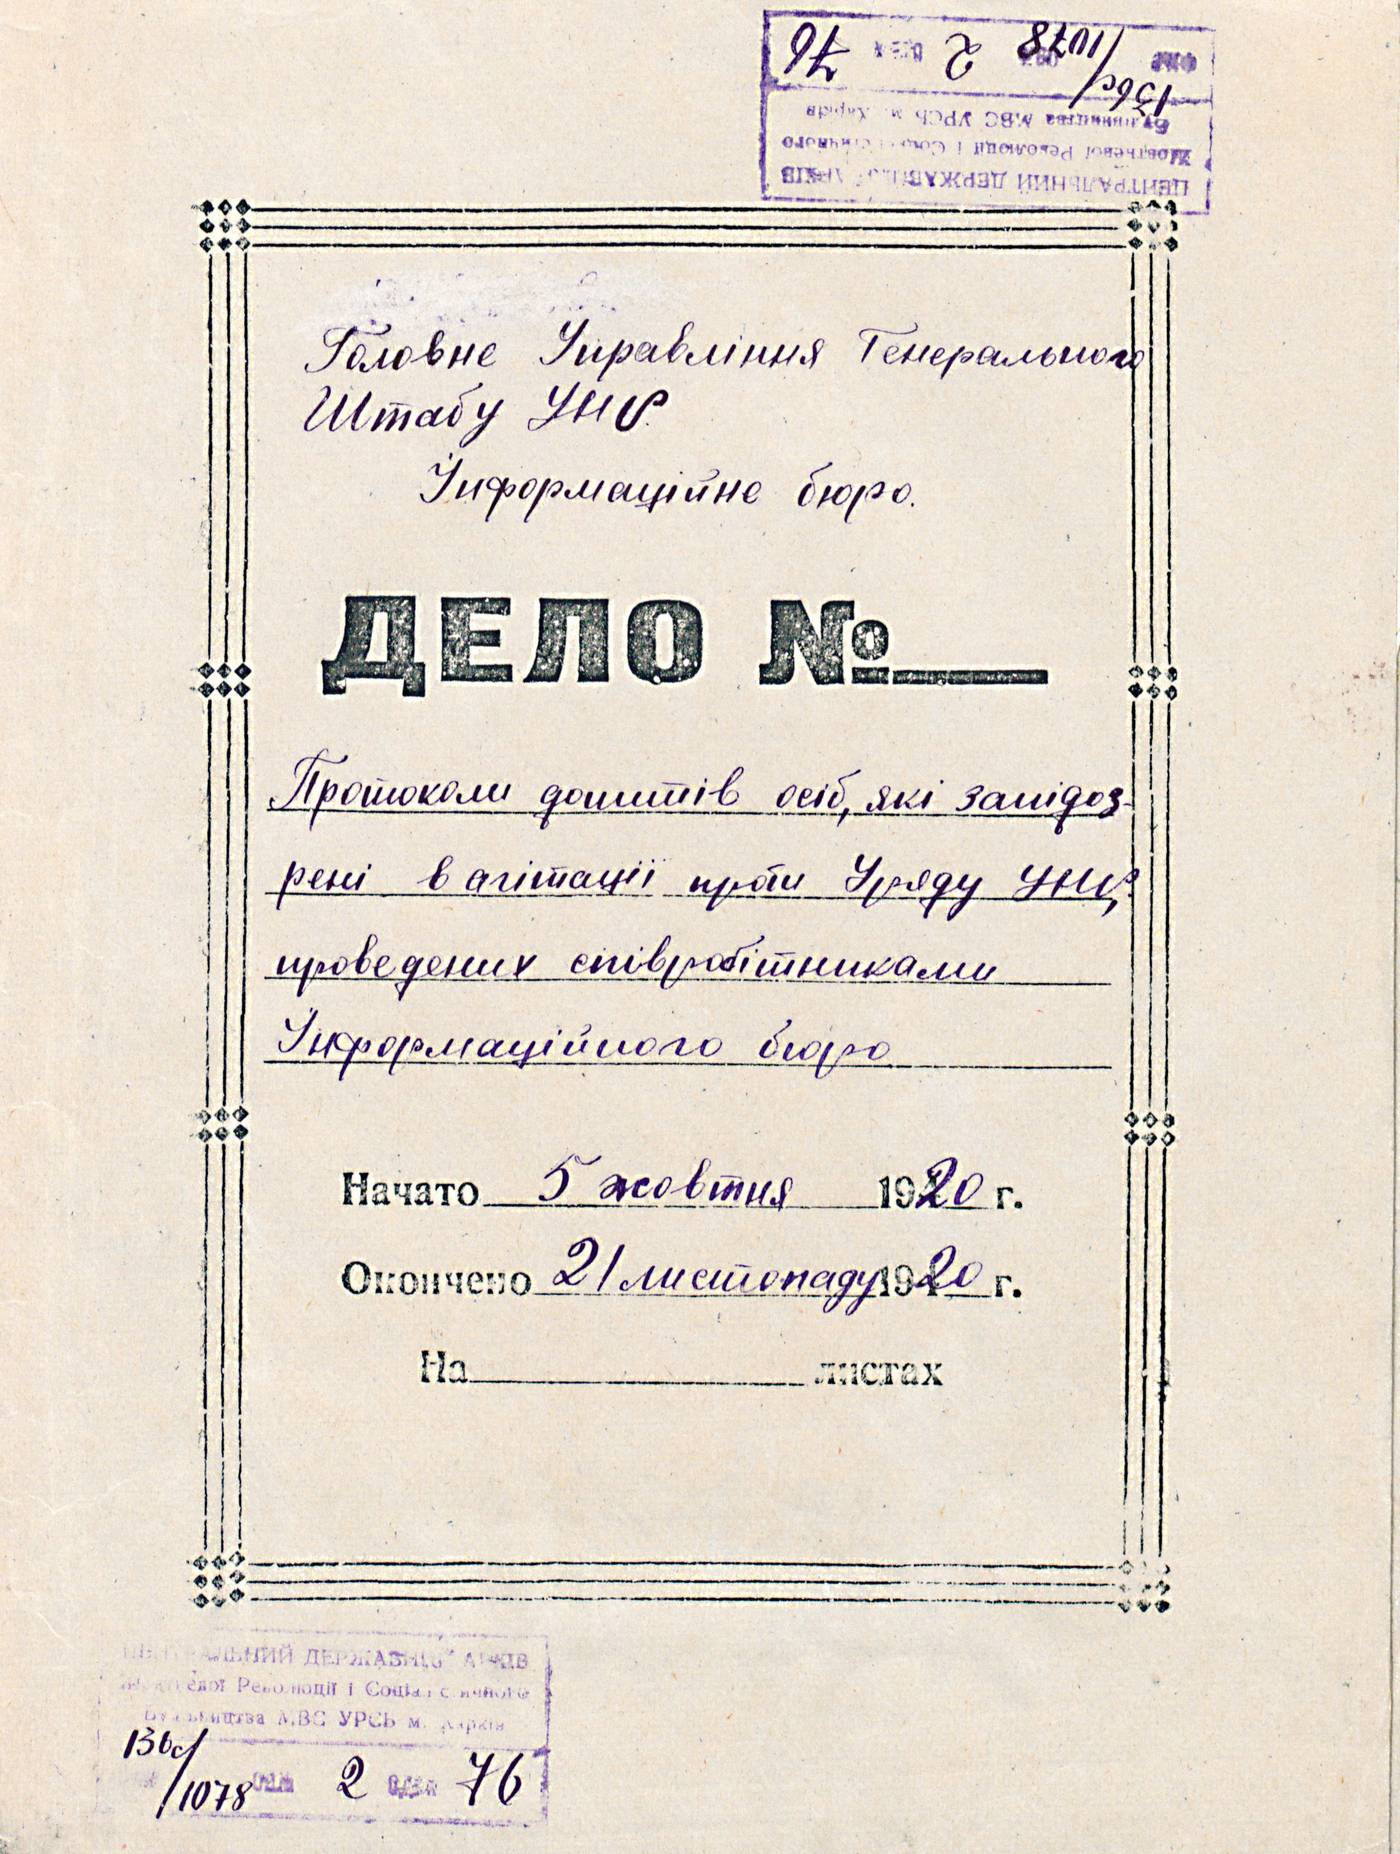 ЦЕНТРАЛЬНИЙ ДЕРЖАВНИЙ АРХІВ
Жовтневої Революції і Соціалістичного
Будівництва МВС УРСР м. Харків
136с/1078 2 76
Головне Управління Генерального
Штабу УНР.
Інформаційне бюро.
ДЕЛО №
Протоколи допитів осіб, які запідоз-
рені в агітації проти Уряду УНР,
проведених співробітниками
Інформаційного бюро
Начато 5 жовтня 1920 г.
Окончено 21 листопаду 1920 г.
На листах
ЦЕНТРАЛЬНИЙ ДЕРЖАВНИЙ АРХІВ
Жовтневої Революції і Соціалістичного
Будівництва МВС УРСР м. Харків
136с/1078 2 76